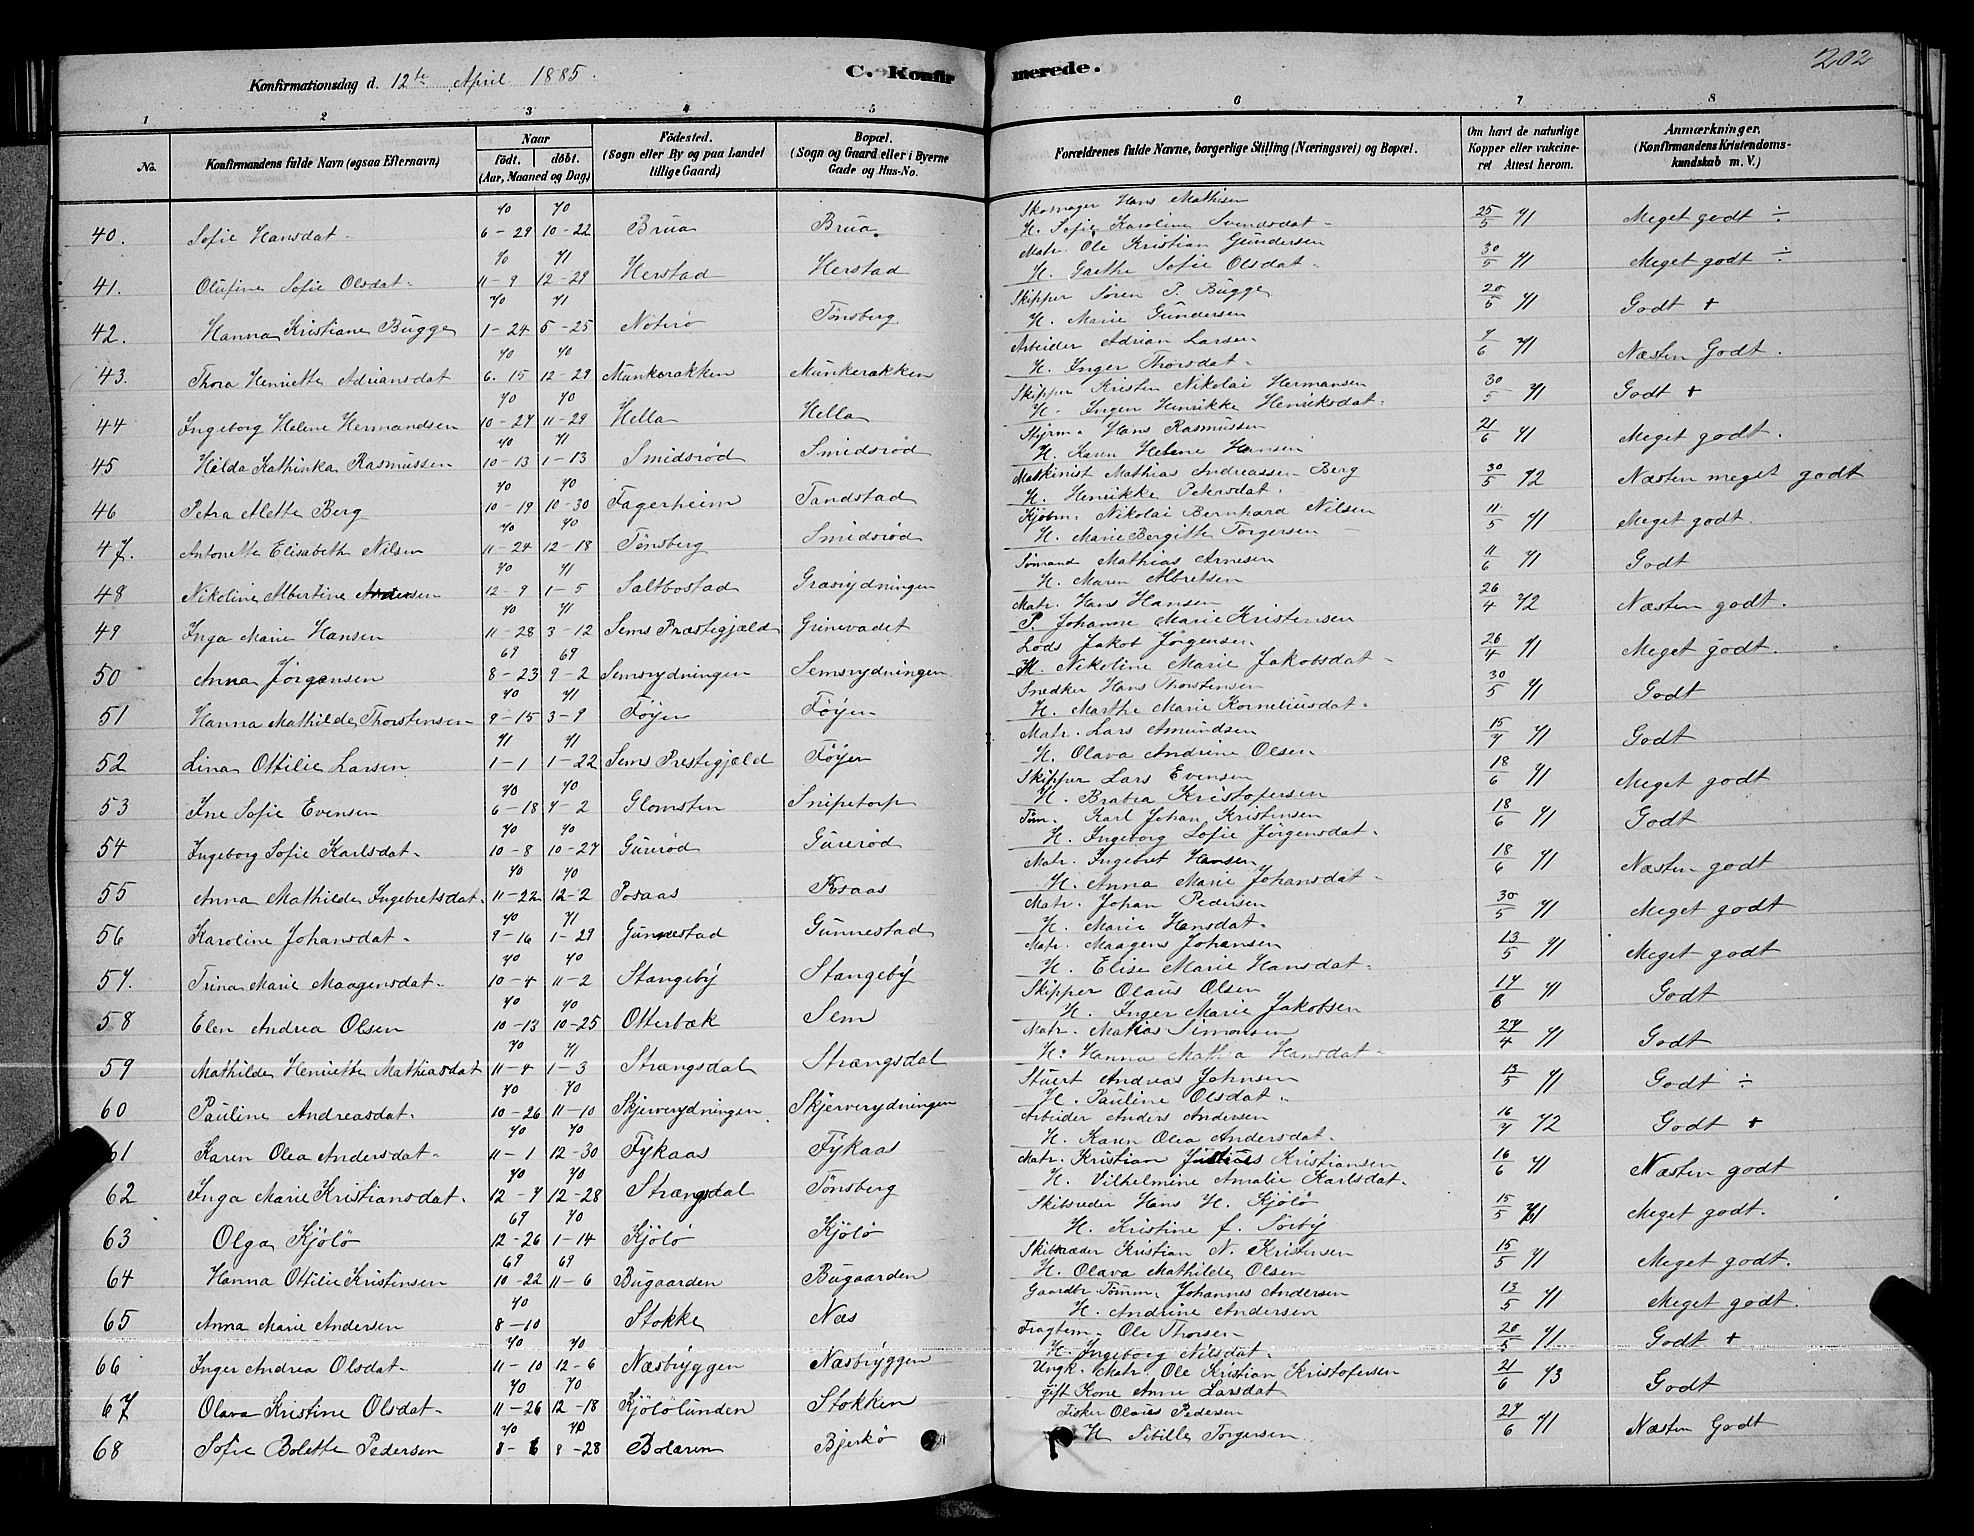 Konfirmationsdag d. 12te April 1885. C. Konfirmerede. 202
1 2 3 4 5 6 7 8
No. Konfirmandens fulde Navn (ogsaa Efternavn) Naar født. døbt. (Aar, Maaned og Dag) Födested. (Sogn eller By og paa Landet tillige Gaard) Bopæl. (Sogn og Gaard eller i Byerne Gade og Hus-No. Forældrenes fulde Navne, borgerlige Stilling (Næringsvei) og Bopæl. Om havt de naturlige Kopper eller vakcineret Attest herom. Anmærkninger. (Konfirmandens Kristendomskundskab m. V.)
70 70 Skomager Hans Mathisen
40. Sofie Hansdat- 6-29 10-22 Brua Brua. H. Sofie Karoline Svendsdat- 25/5 71 Meget godt ÷
70 71 Matr. Ole Kristian Gundersen
41. Olufine Sofie Olsdat- 11-9 12-29 Herstad Herstad H. Grethe Sofie Olsdat- 30/5 71 Meget godt ÷
70 71 Skipper Søren P. Bugge
42. Hanna Kristiane Bugge 1-24 5-25 Nøterø Tønsberg H. Marie Gundersen 20/5 71 Godt +
70 70 Arbeider Adrian Larsen
43. Thora Henriette Adriansdat 6.15 12-29 Munkerakken Munkerakken H. Inger Thorsdat- 7/6 71 Næsten Godt.
70 70 Skipper Kristen Nikolai Hermansen
44 Ingeborg Helene Hermandsen 10-27 11-29 Hella Hella H. Inger Henrikke Henriksdat- 30/5 71 Godt +
70 71 Styrm. Hans Rasmussen
45 Hilda Kathinka Rasmussen 10-13 1-13 Smidsrød Smidsrød H. Karen Helene Hansen 21/6 71 Meget godt.
70 70 Maskinist Mathias Andreassen Berg
46 Petra Alette Berg 10-19 10-30 Fagerheim Tandstad H. Henrikke Petersdat. 30/5 72 Næsten meget godt
70 70 Kjøbm. Nikolai Bernhard Nilsen
47. Antonette Elisabeth Nilsen 11-24 12-18 Tønsberg Smidsrød H. Marie Bergitte Torgersen 11/5 71 Meget godt.
70 71 Sømand Mathias Arnesen
48 Nikoline Albertine 12-9 1-5 Saltbostad Grasrydningen H. Maren Albretsen 11/6 71 Godt
70 71 Matr. Hans Hansen
49 Inga Marie Hansen 11-28 3-12 Sems Præstegjæld Grinevadet P. Johanne Marie Kristensen 26/4 72 Næsten godt.
69 69 Lods Jakob Jørgensen
50 Anna Jørgensen 8-23 9-2 Semsrydningen Semsrydningen H. Nikoline Marie Jakobsdat- 26/4 71 Meget godt.
70 71 Snedker Hans Thorstensen
51 Hanna Mathilde Thorstensen- 9-15 3-9 Føyen Føyen H. Marthe Marie Korneliusdat- 30/5 71 Godt
71 71 Matr. Lars Amundsen
52 Lina Ottilie Larsen 1-1 1-22 Sems Prestegjæld Føyen H. Olava Andrine Olsen 15/7 71 Godt
70 70 Skipper Lars Evensen
53 Ine Sofie Evensen 6-18 7-2 Glomsten Snipetorp H. Brabra Kristofersen 18/6 71 Meget godt
70 70 Tøm. Karl Johan Kristensen
54 Ingeborg Sofie Karlsdat- 10-8 10-27 Gurerød Gurerød H. Ingeborg Sofie Jørgensdat- 18/6 71 Godt
70 70 Matr. Ingebret Hansen
55 Anna Mathilde Ingebretsdat. 11-22 12-2 Roraas Roraas H. Anna Marie Johansdat- 18/6 71 Næsten godt
70 71 Matr. Johan Pedersen
56 Karoline Johansdat- 9-16 1-29 Gunnestad Gunnestad H. Marie Hansdat- 30/5 71 Meget godt
70 70 Matr. Maagens Johansen
57. Trina Marie Maagensdat- 10-4 11-2 Stangeby Stangeby H. Elise Marie Hansdat- 13/5 71 Meget godt
70 70 Skipper Olaus Olsen
58 Elen Andrea Olsen 10-13 10-25 Otterbæk Sem H. Inger Marie Jakobsen 17/6 71 Godt
70 71 Matr. Matias Simonsen
59 Mathilde Henriette Mathiasdat 11-4 1-3 Strængsdal Strængsdal H. Hanna Mathea Hansdat- 27/4 71 Godt
70 70 Stuert Andreas Johnsen
60 Pauline Andreasdat- 10-26 11-10 Skjerverydningen Skjerverydningen H. Pauline Olsdat- 13/5 71 Godt ÷
70 70 Arbeider Anders Andersen
61 Karen Olea Andersdat- 11-1 12-30 Fykaas Fykaas H. Karen Olea Andersdat- 16/7 72 Godt +
70 70 Matr. Kristian Kristiansen
62 Inga Marie Kristiansdat- 12-7 12-28 Strængsdal Tønsberg H. Vilhelmine Amalie Karlsdat- 16/6 71 Næsten godt
69 70 Skibsreder Hans H. Kjølø
63 Olga Kjølø 12-26 1-14 Kjølø Kjølø H. Kristine f. Sørby 15/5 71 Meget godt.
69 69 Skibsræder Kristian N. Kristensen
64 Hanna Ottilie Kristinsen 10-22 11-6 Bugaarden Bugaarden H. Olava Mathilde Olsen 15/5 71 Meget godt.
70 Gaardbr. Tømm. Johannes Andersen
65 Anna Marie Andersen 8-10 Stokke Næs H. Andrine Andersen 13/5 71 Meget godt.
70 70 Fragtem. Ole Thorsen
66 Inger Andrea Olsdat- 11-10 12-6 Næsbryggen Næsbryggen H. Ingeborg Nilsdat- 20/5 71 Godt +
70 70 Ungk. Matr. Ole Kristian Kristofersen
67 Olava Kristine Olsdat- 11-26 12-18 Kjølølunden Stokken gift Kone Anne Larsdat 21/6 73 Godt
70 70 Fisker Olaus Pedersen
68 Sofie Bolette Pedersen 8-6 8-28 Bolæren Bjerkø H Sibille Torgersen 27/6 71 Næsten Godt